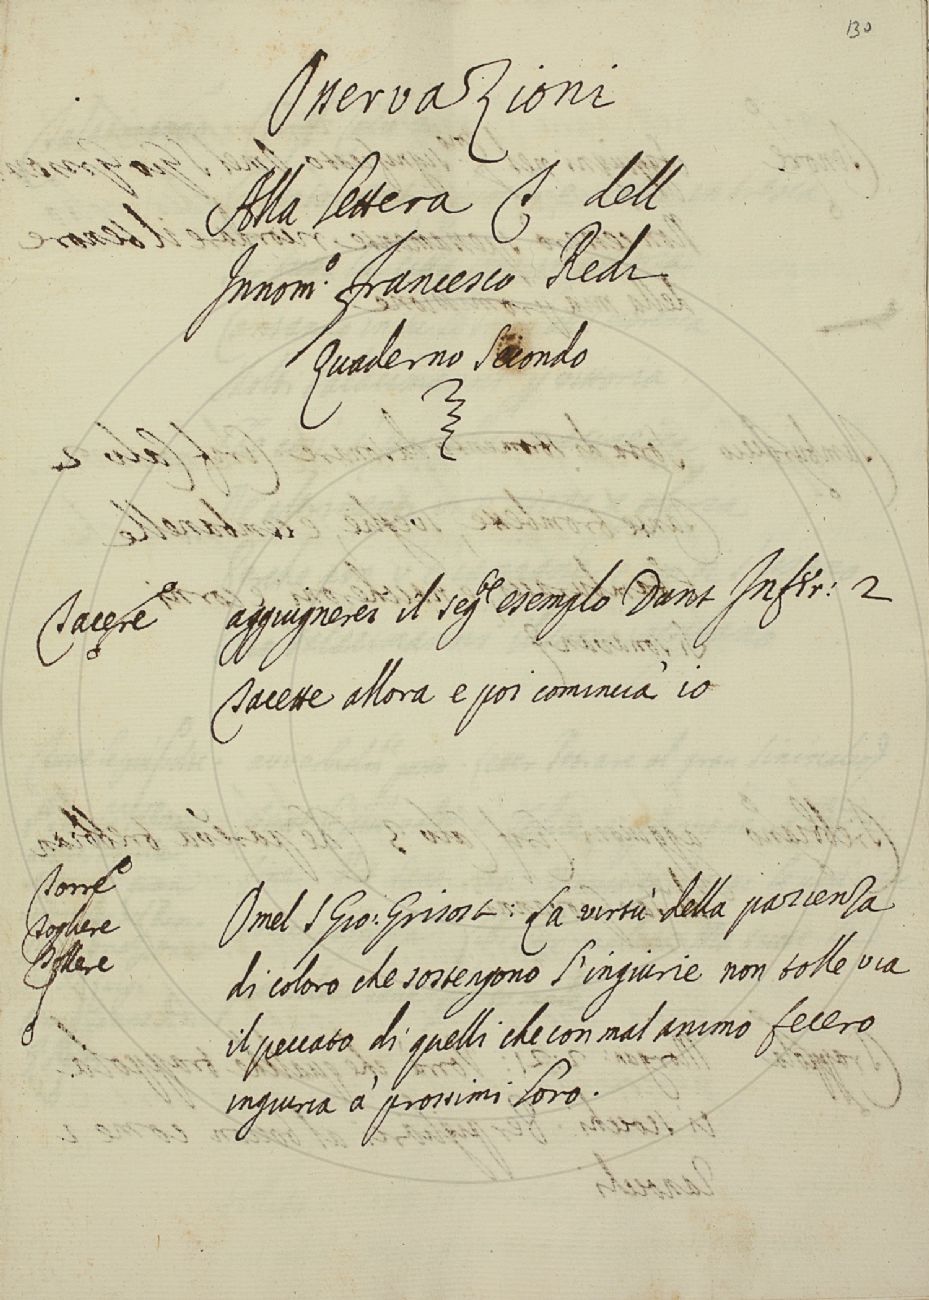 130
Osservazioni
Alla lettera T dell
Innom.o Francesco Redi
Quaderno Secondo
Tacere aggiugnerei il seg.te esemplo Dant Inf: 2
Tacette allora e poi comincia' io
Torre
Togliere
Tollere
Omel S Gio: Grisost: La virtù della pacienza
di coloro che sostengono l'ingiurie non tolle via
il peccato di quelli che con mal animo fecero
ingiuria a' prossimi loro.